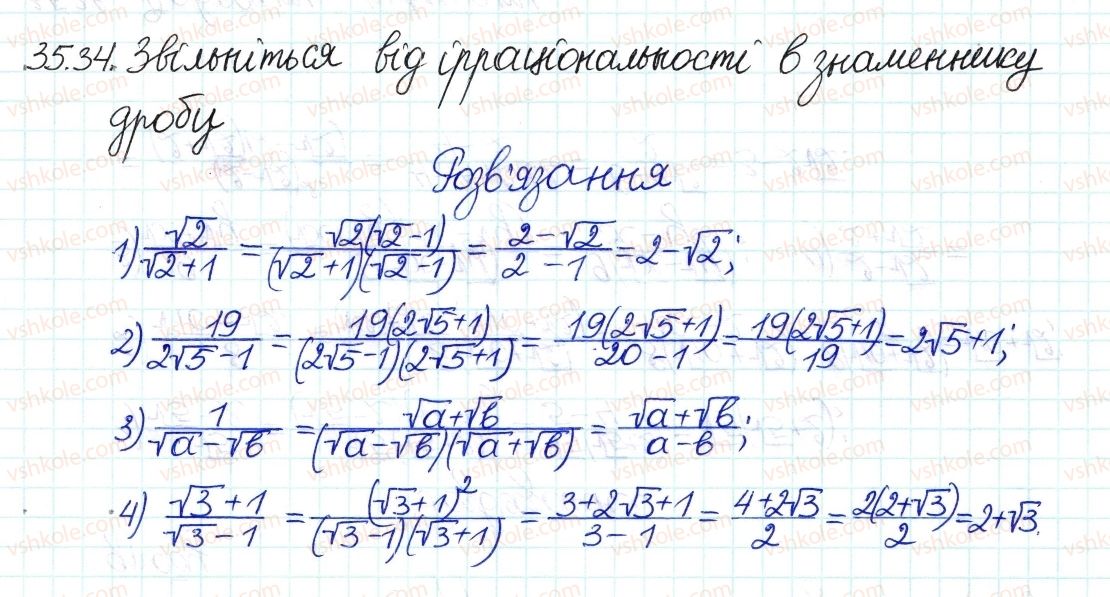 35.34. Звільніться від ірраціональності в знаменнику
дробу
Розв'язання
1) √2/(√2+1) = √2(√2-1)/((√2+1)(√2-1)) = (2-√2)/(2-1) = 2-√2;
2) 19/(2√5-1) = 19(2√5+1)/((2√5-1)(2√5+1)) = 19(2√5+1)/(20-1) = 19(2√5+1)/19 = 2√5+1;
3) 1/(√a-√b) = (√a+√b)/((√a-√b)(√a+√b)) = (√a+√b)/(a-b);
4) (√3+1)/(√3-1) = (√3+1)²/((√3-1)(√3+1)) = (3+2√3+1)/(3-1) = (4+2√3)/2 = 2(2+√3)/2 = 2+√3.
vshkole.com